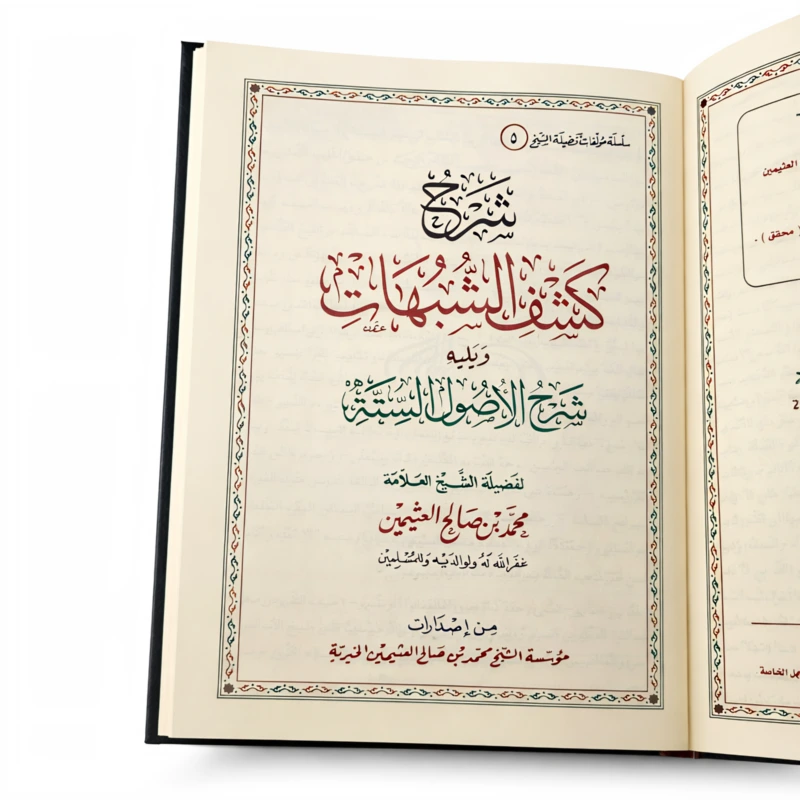 سلسلة مؤلفات فضيلة الشيخ ٥
شَرْحُ
كَشْفِ الشُّبُهَاتِ
وَيَلِيهِ
شَرْحُ الأُصُولِ السِّتَّةِ
لفَضيلة الشَّيْخ العَلّامَة
محمَّد بْن صَالح العثيمين
غفَر اللَّه لَهُ ولوالدَيْه وَللمُسْلِمين
مِن إصْدَارات
مؤسّسة الشيخ محمّد بن صَالح العثيمين الخيريّة
العثيمين
( محقق ) .
2
مل الخاصة